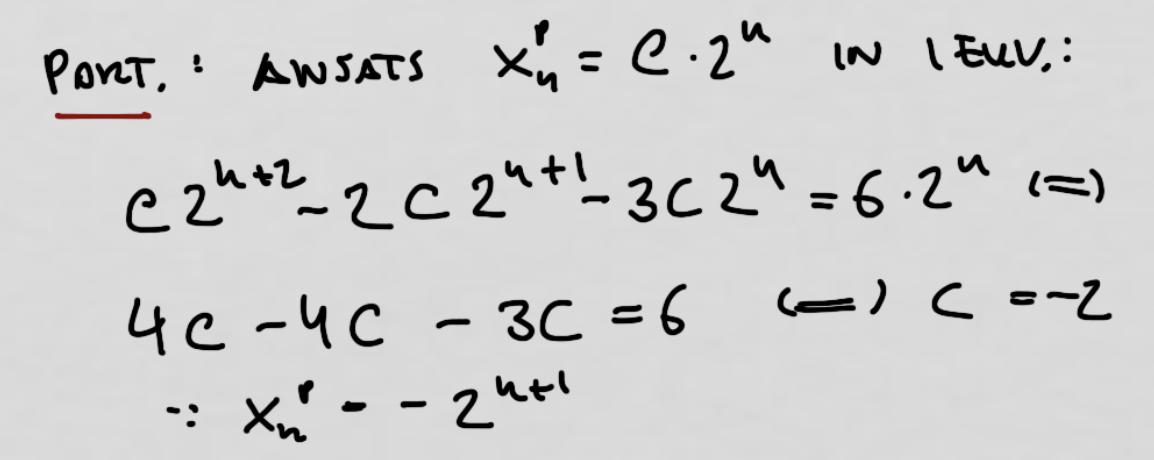 PART.: ANSATS xₙᵖ = C·2ⁿ IN I EKV.:
C2ⁿ⁺² - 2C2ⁿ⁺¹ - 3C2ⁿ = 6·2ⁿ (=)
4C - 4C - 3C = 6 (=) C = -2
∵ xₙᵖ - - 2ⁿ⁺¹